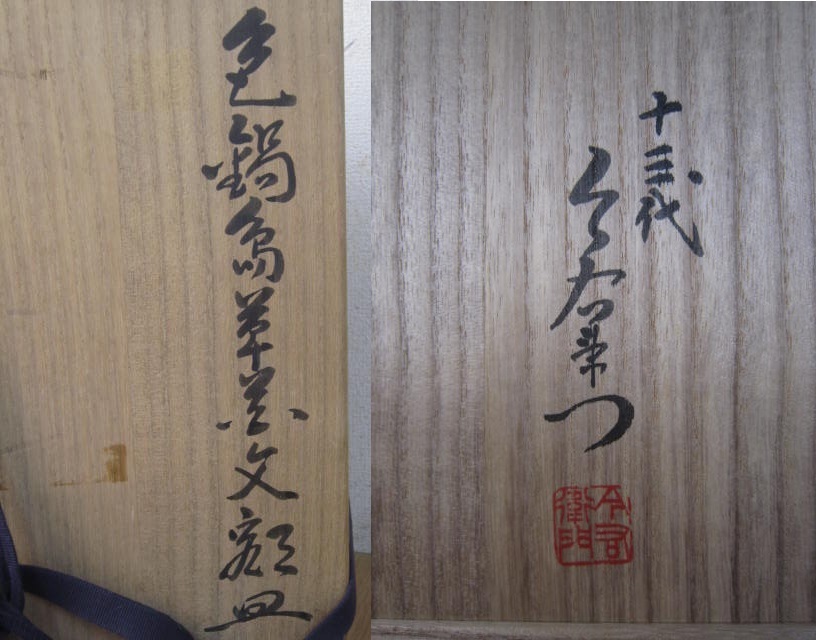 色鍋島草花文額皿
十三代
今右衛門
今右衛門